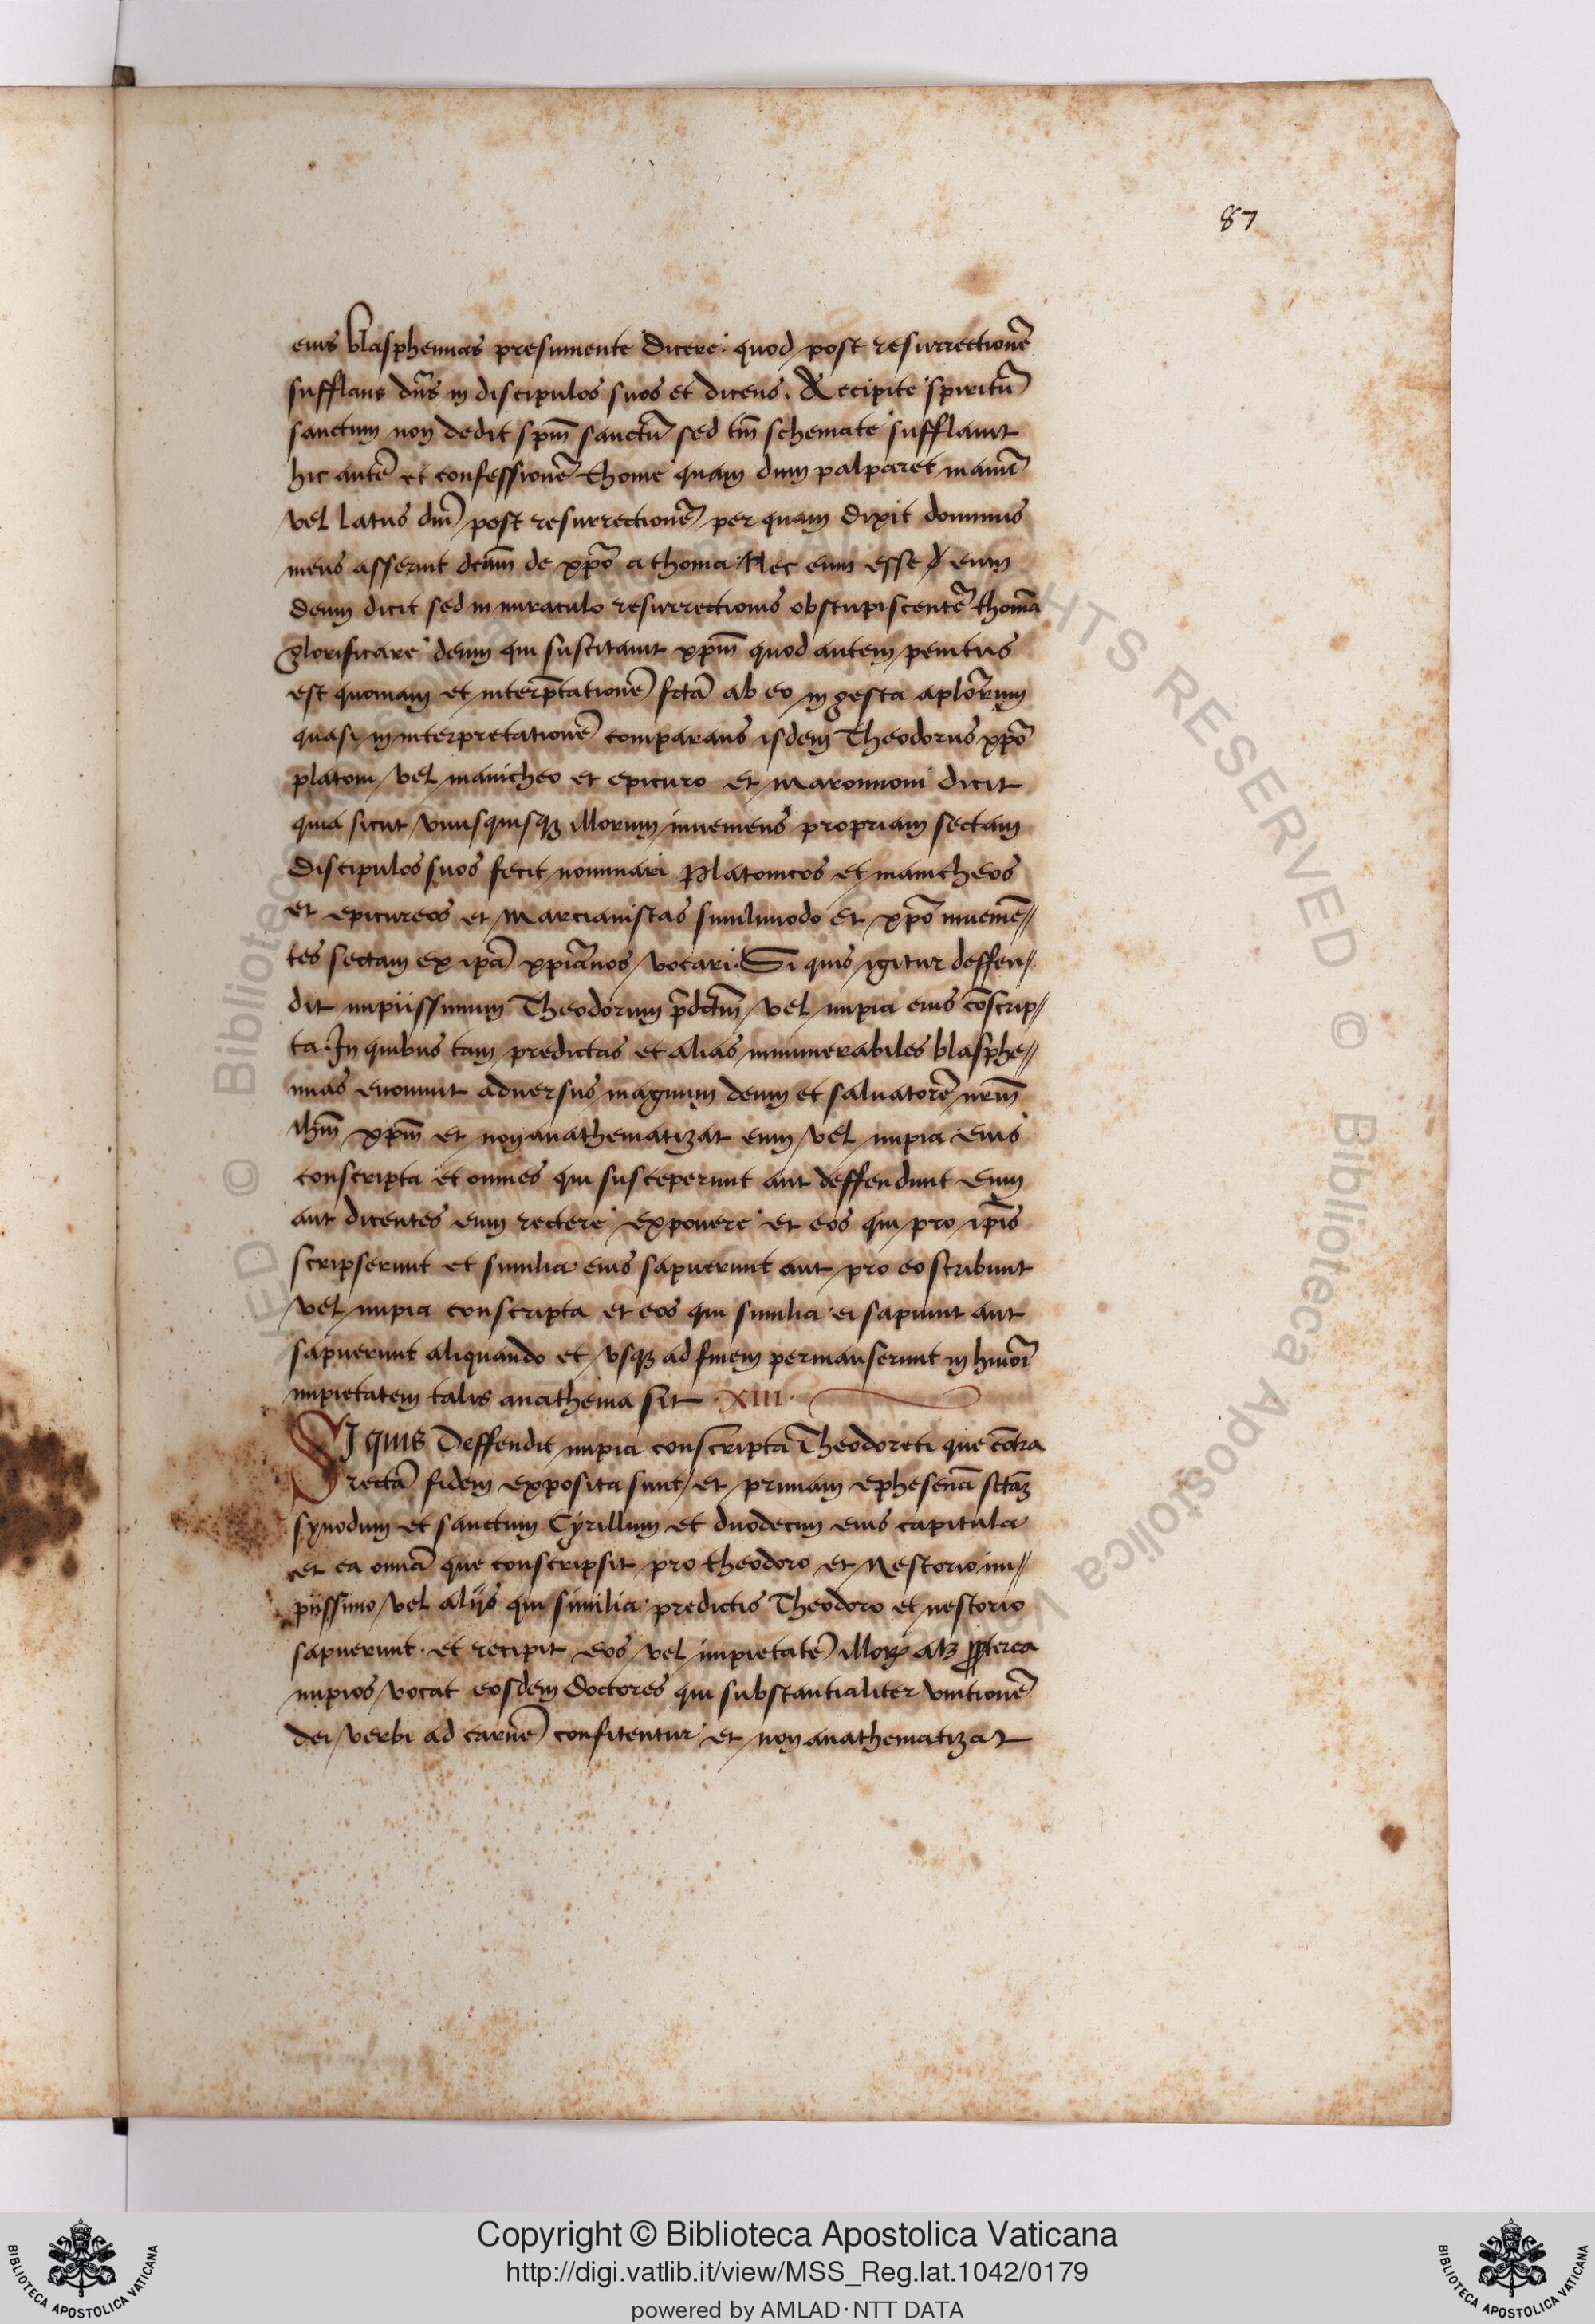 87
eius blasphemias presumente dicere. quod post resurrectionē
sufflans dn̄s in discipulos suos et dicens. Recipite spiritū
sanctum non dedit spm̄ sanctū sed tm̄ schemate sufflauit
hic autē et confessionē thome quam dum palparet manū
vel latus dn̄i post resurrectionē per quam dixit dominus
meus asserunt dcām de xpō a thoma. Nec eum esse eum
deum dicit sed in miraculo resurrectionis obstupiscentē thomā
glorificare deum qui suscitauit xpm̄ quod autem penitus
est quoniam et interp̄tationē fctā ab eo in gesta aplōrum
quasi in interpretationē comparans isdem Theodorus xpō
platoni vel manicheo et epicuro et maronnoni dicit
quia sicut vnusquisqȝ illorum inueniens propriam sectam
discipulos suos fecit nominari Platonicos et manicheos
et epicureos et Marcianistas similimodo et xpō inueniē//
tes sectam ex ipā xpiānos vocari. Si quis igitur deffen//
dit impiissimum Theodorum p̄dctm̄ vel impia eius cōscrip//
ta. In quibus tam predictas et alias innumerabiles blasphe//
mias euomuit aduersus magnum deum et saluatorē nrm̄
ihm̄ xpm̄ et non anathematizat eum vel impia eius
conscripta et omnes qui susceperunt aut deffendunt eum
aut dicentes eum rectere exponere et eos qui pro ipīs
scripserunt et similia eius sapuerunt aut pro eo scribunt
vel impia conscripta et eos qui similia ei sapiunt aut
sapuerunt aliquando et vsqȝ ad finem permanserunt in hmōi
impietatem talis anathema sit. XIII.
SI quis deffendit impia conscripta Theodoreti que cōtra
rectā fidem exposita sunt et primam ephesenā sctāȝ
synodum et sanctum Cyrillum et duodecim eius capitula
et ea omnia que conscripsit pro theodoro et Nestorio im//
piissimo vel alijs qui similia predictis Theodoro et nestorio
sapuerunt. et recipit eos vel impietatē illoꝝ atqȝ ꝓpterea
impios vocat eosdem doctores qui substantialiter vnitionē
dei verbi ad carnē confitentur et non anathematizat
Copyright © Biblioteca Apostolica Vaticana
http://digi.vatlib.it/view/MSS_Reg.lat.1042/0179
powered by AMLAD·NTT DATA
BIBLIOTECA APOSTOLICA VATICANA
BIBLIOTECA APOSTOLICA VATICANA